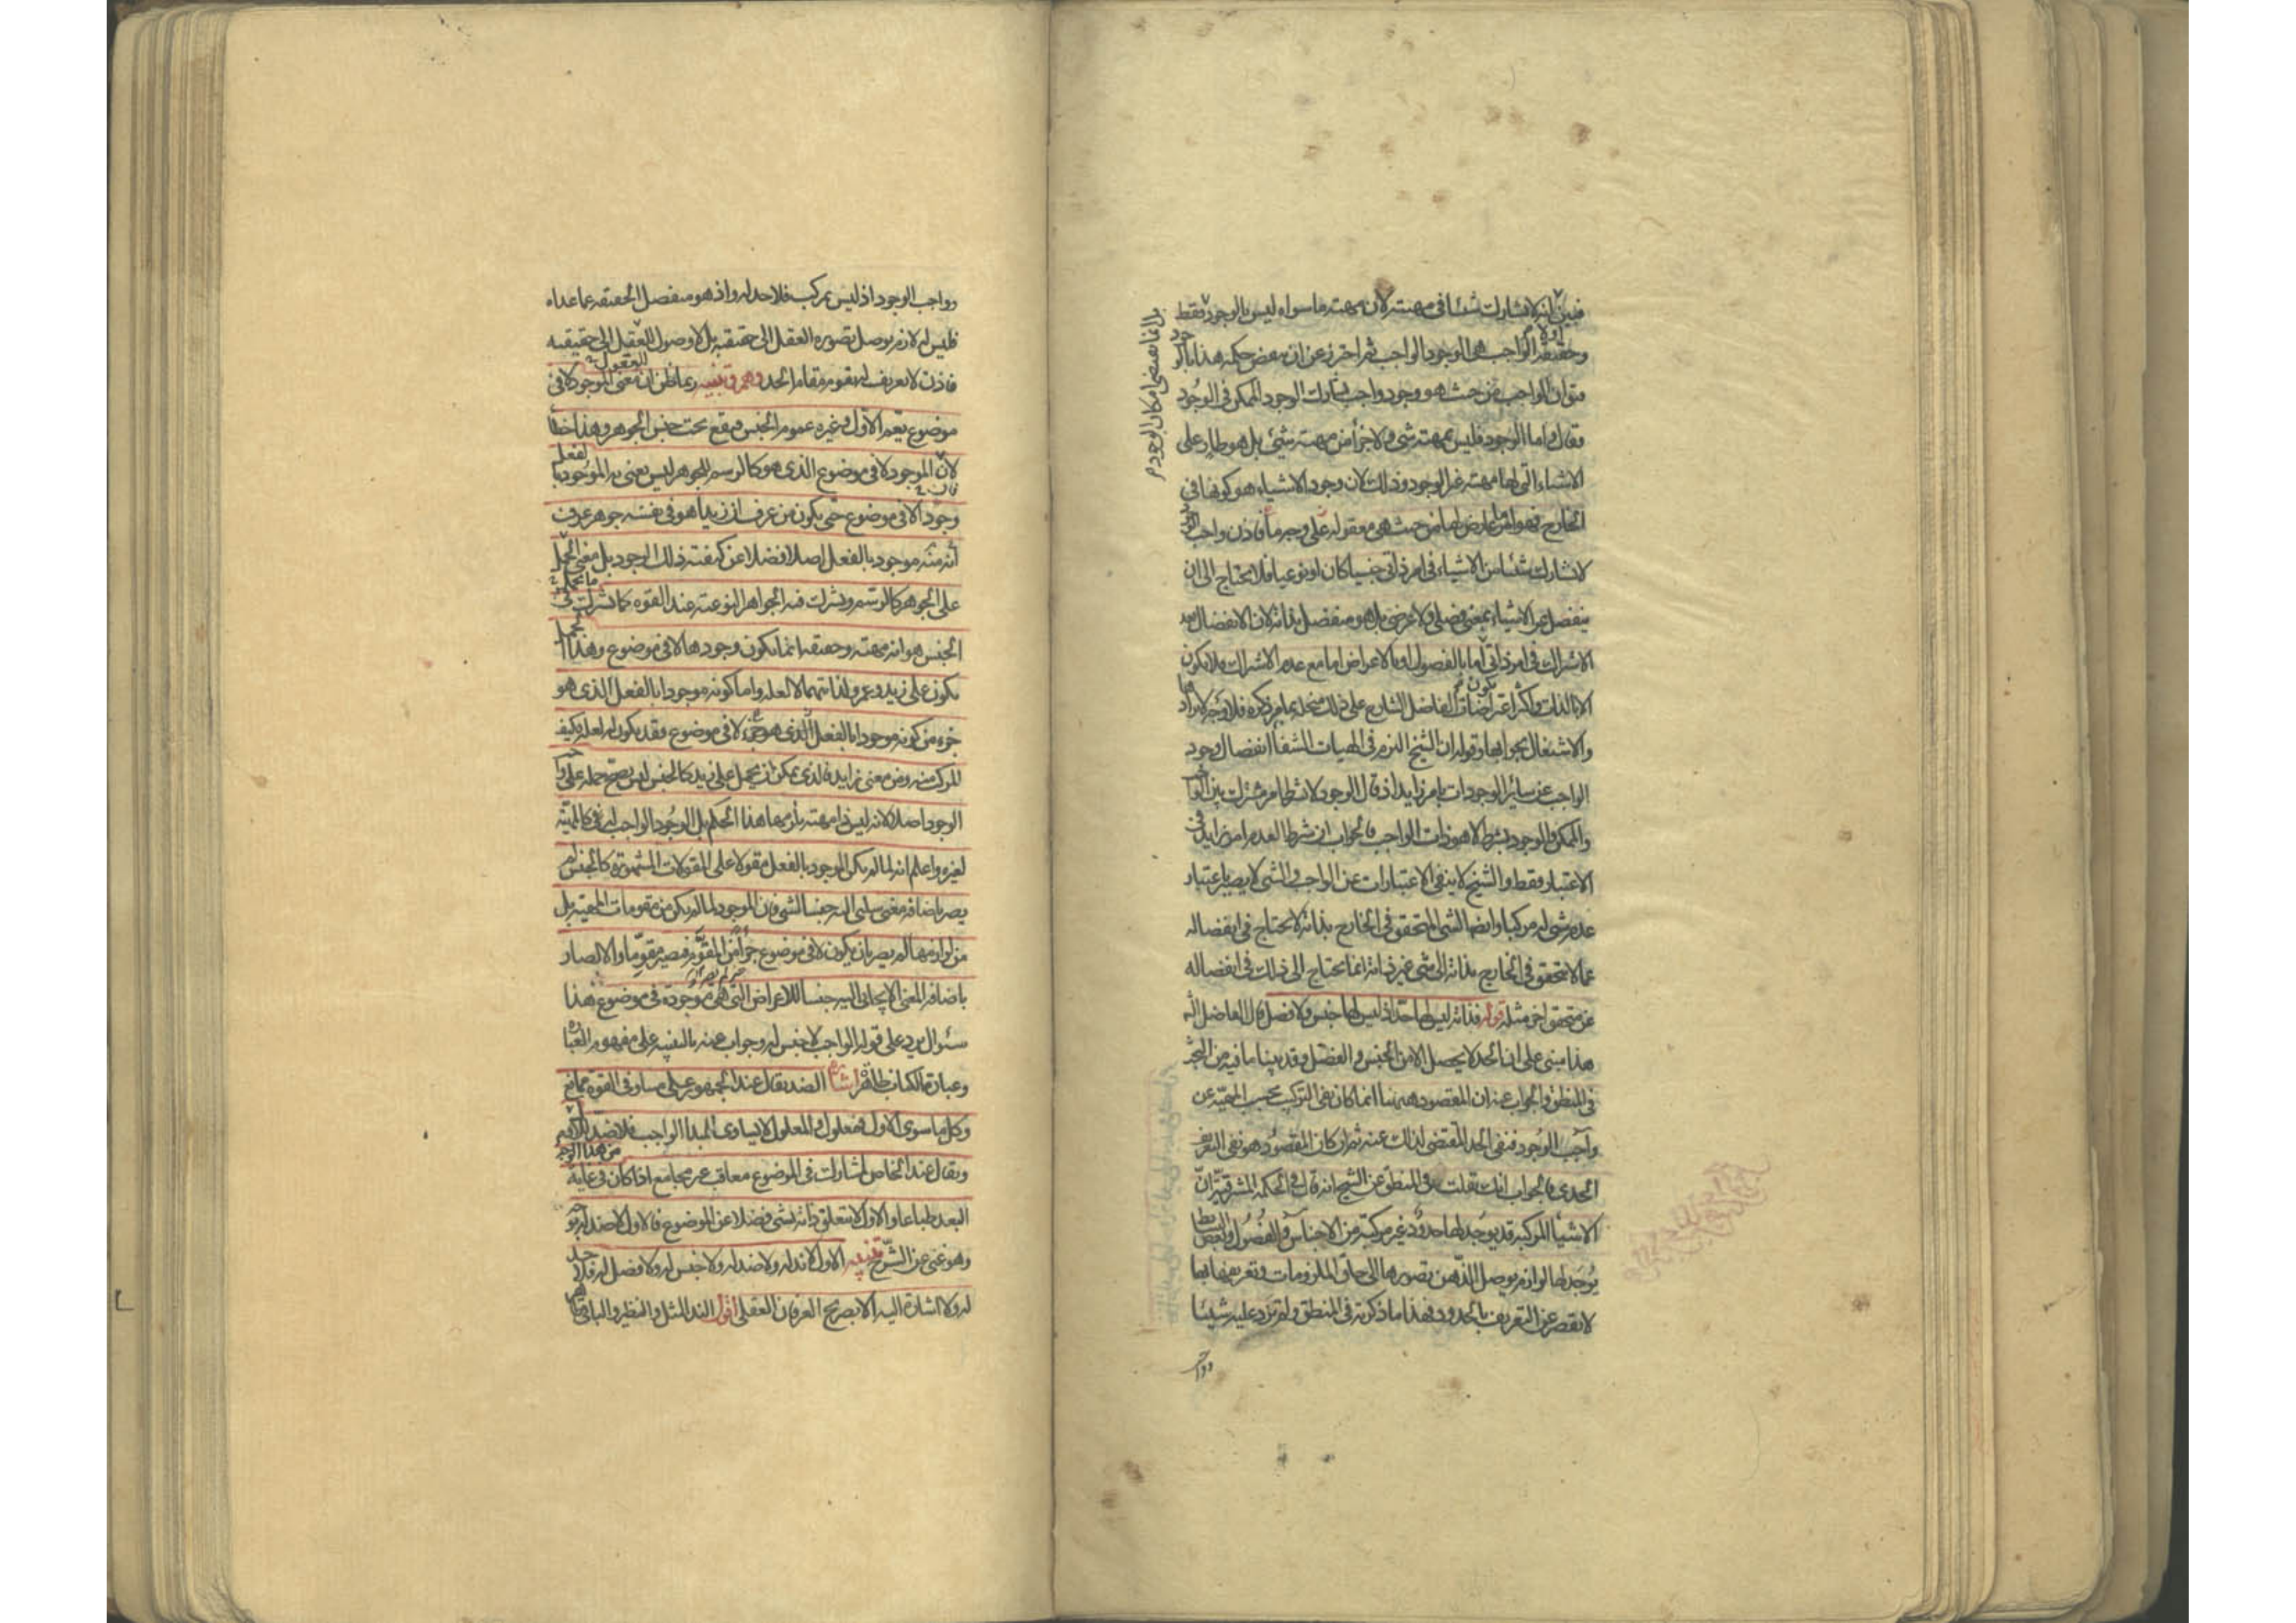 فبين أولا انه لا يشارك شيئا في مهيته لان مهيته ما سواه ليس بالوجود فقط
بل انما تقتضي امكان الوجود
وحقيقة الواجب هي الوجود الواجب ثم احترز عن ان ينقض حكمه هذا بالوجود
فيقال الواجب من حيث هو وجود واجب يشارك الوجود الممكن في الوجود
فقال واما الوجود فليس بمهية شي ولا جزأ من مهية شي بل هو طار على
الاشياء التي لها مهية غير الوجود وذلك لان وجود الاشياء هو كونها في
الخارج فهو امر عارض لها من حيث هي معقولة على وجه ما فاذن واجب الوجود
لا يشارك شيئا من الاشياء في امر ذاتي جنسيا كان او نوعيا فلا يحتاج الى ان
ينفصل عن الاشياء بمعنى فصلي ولا عرضي بل هو منفصل بذاته لان الانفصال بعد
الاشتراك في امر ذاتي اما بالفصول او بالاعراض اما مع عدم الاشتراك فلا يكون
الا بالذات واكثر اعتراضات الفاضل الشارح على ذلك منحلة بما مر ذكره فلا وجه لايرادها
والاشتغال بجوابها وقوله ان الشيخ التزم في الهيات الشفا انفصال وجود
الواجب عن ساير الوجودات بامر زايد اذ قال الوجود لا بشرط امر مشترك بين الواجب
والممكن والوجود بشرط لا هو ذات الواجب فالجواب ان شرط العدم امر زايد في
الاعتبار فقط والشيخ لا ينفي الاعتبارات عن الواجب والشي لا يصير باعتبار
عدم شي له مركبا وايضا الشي المتحقق في الخارج بذاته لا يحتاج في انفصاله
عما لا يتحقق في الخارج بذاته الى شي غير ذاته انما يحتاج الى ذلك في انفصاله
عن متحقق اخر مثله قوله فذاته ليس لها حد اذ ليس لها جنس ولا فصل قال الفاضل الشه
هذا مبني على ان الحد لا يحصل الا من الجنس والفصل وقد بينا ما فيه من البحث
في المنطق والجواب عنه ان المقصود ههنا انما كان نفي التركيب بحسب المهية عن
واجب الوجود فنفى الحد المقتضي لذلك عنه ثم ان كان المقصود هو نفي التعريف
الحدي فالجواب انك نقلت في المنطق عن الشيخ انه قال في الحكمة المشرقية ان
الاشيا المركبة قد يوجد لها حدود غير مركبة من الاجناس والفصول وبعض البسايط
يوجد لها لوازم يوصل الذهن تصورها الى حاق الملزومات وتعريفها بها
لا يقصر عن التعريف بالحدود فهذا ما ذكرته في المنطق ولم تزد عليه شيئا
وواجب الوجود اذ ليس بمركب فلا حد له واذ هو منفصل الحقيقة عما عداه
فليس له لازم يوصل تصوره العقل الى حقيقته بل لا وصول للعقول الى حقيقته
فاذن لا تعريف له يقوم مقام الحد وهم وتنبيه ربما ظن ان معنى الموجود لا في
موضوع يعم الاول وغيره عموم الجنس فيقع تحت جنس الجوهر وهذا خطأ
لان الموجود لا في موضوع الذي هو كالرسم للجوهر ليس يعنى به الموجود بالفعل
وجودا لا في موضوع حتى يكون من عرف ان زيدا هو في نفسه جوهر عرف
انه منه موجود بالفعل اصلا فضلا عن كيفية ذلك الوجود بل معنى ما يحمل
على الجوهر كالرسم ويشترك فيه الجواهر النوعية عند القوة كما يشترك في
الجنس هو انه مهية وحقيقة انما يكون وجودها لا في موضوع وهذا الحمل
يكون على زيد وعمرو لذاتيهما لا لعلة واما كونه موجودا بالفعل الذي هو
جزء من كونه موجودا بالفعل لا في موضوع فقد يكون له لعلة فكيف
المركب منه ومن معنى زايد فالذي يمكن ان يحمل على زيد كالجنس ليس يصح حمله على واجب
الوجود اصلا لانه ليس ذا مهية يلزمها هذا الحكم بل الوجود الواجب له كالمهية
لغيره واعلم انه لما لم يكن الموجود بالفعل مقولا على المقولات المشهورة كالجنس لم
يصر باضافة معنى سلبي اليه جنسا لشي فان الموجود لما لم يكن من مقومات المهية بل
من لوازمها لم يصر بان يكون لا في موضوع جزأ من المقوم فيصير مقوما والا لصار
باضافة المعنى الايجابي اليه جنسا للاعراض التي هي موجودة في موضوع هذا
سئوال يرد على قوله الواجب لا جنس له وجواب عنه بالتنبيه على مفهوم العبارة
وعبارة الكتاب ظاهرة اشارة الضد يقال عند الجمهور على مساو في القوة ممانع
وكل ما سوى الاول فمعلول والمعلول لا يساوي المبدا الواجب فلا ضد للاول من هذا الوجه
ويقال عند الخاص لمشارك في الموضوع معاقب غير مجامع اذا كان في غاية
البعد طباعا والاول لا يتعلق ذاته بشي فضلا عن الموضوع فالاول لا ضد له بوجه
وهو غني عن الشرح تنبيه الاول لا ند له ولا ضد له ولا جنس له ولا فصل له فلا حد
له ولا اشارة اليه الا بصريح العرفان العقلي اقول الند المثل والنظير والباقي ظاهر